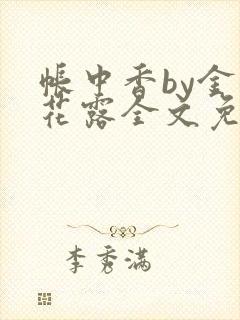 帐中香by金
花露全文免
李秀满